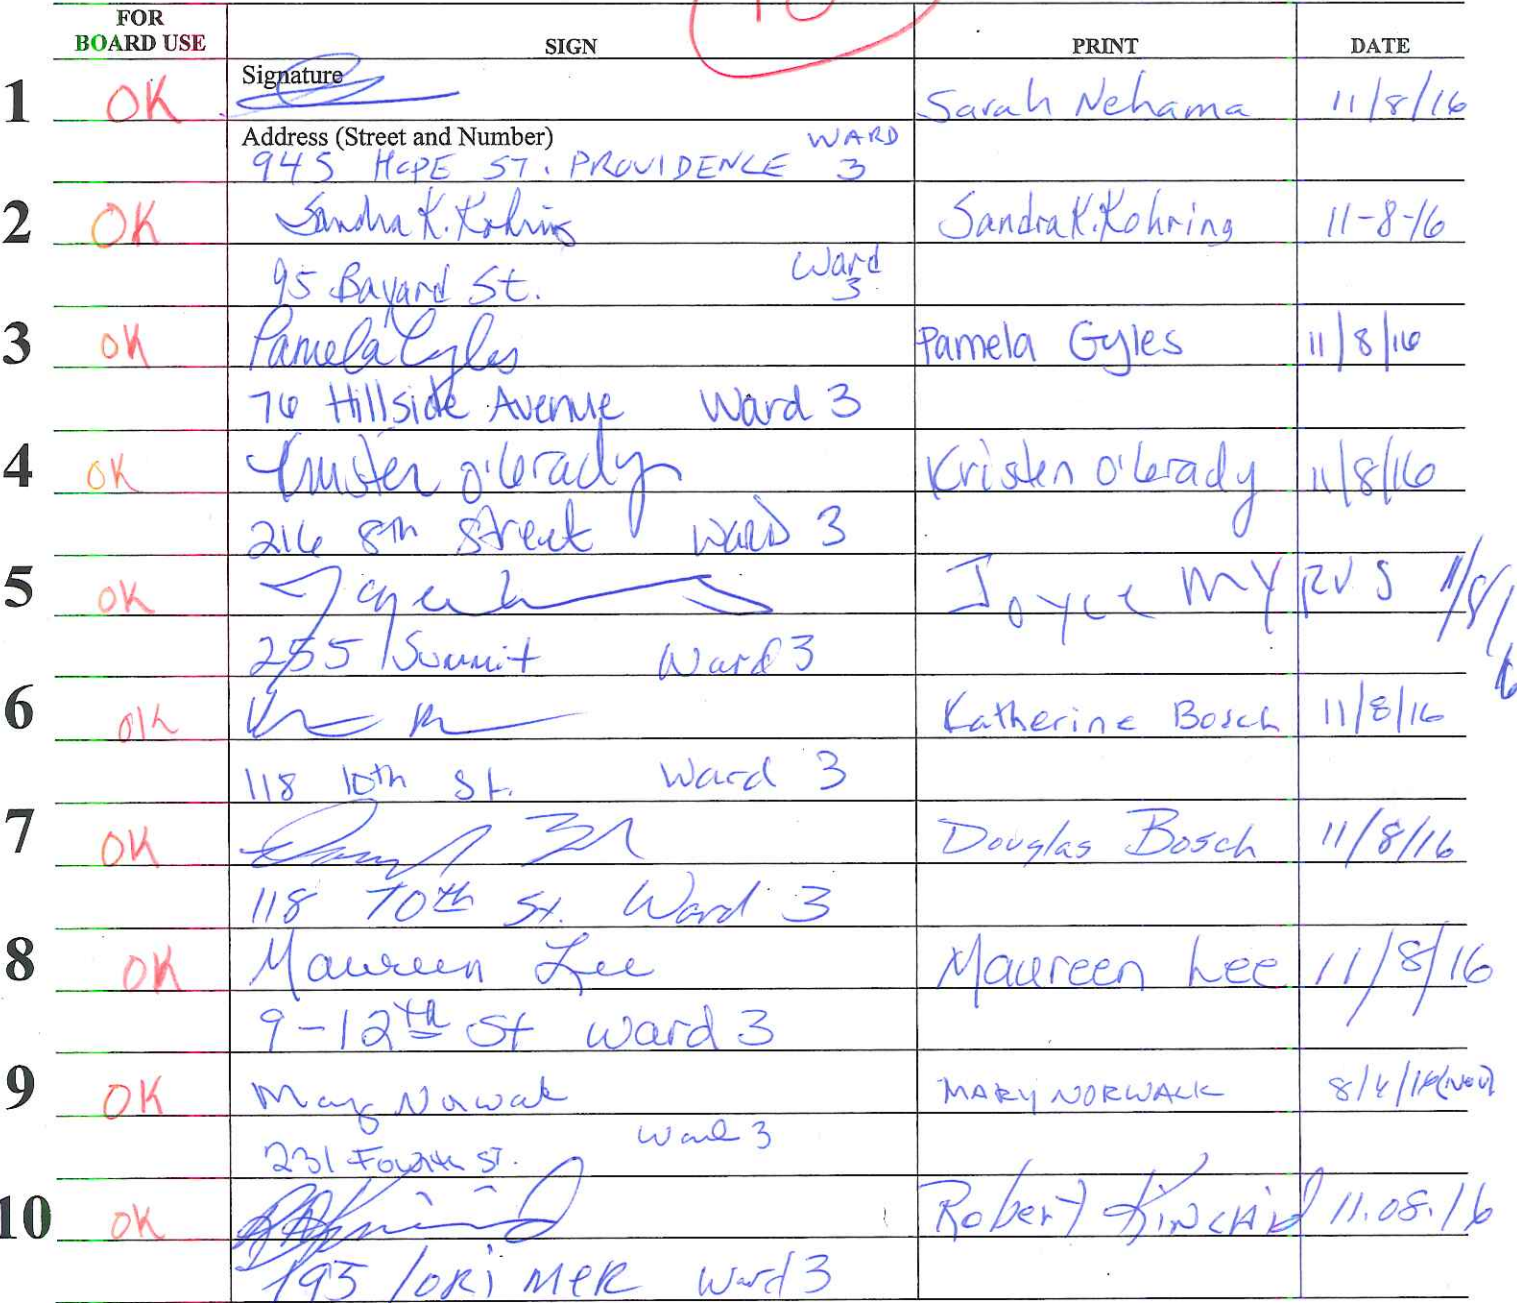 FOR BOARD USE SIGN PRINT DATE
10
1 OK Signature Sarah Nehama 11/8/16
Address (Street and Number) WARD 3
945 HOPE ST. PROVIDENCE
2 OK Sandra K. Kohring Sandra K. Kohring 11-8-16
95 Bayard St. Ward 3
3 OK Pamela Gyles Pamela Gyles 11/8/16
76 Hillside Avenue Ward 3
4 OK Kristen O'Grady Kristen O'Grady 11/8/16
216 8th Street Ward 3
5 OK Joyce 11/8/16
255 Summit Ward 3
6 OK Katherine Bosch 11/8/16
118 10th St. Ward 3
7 OK Douglas Bosch 11/8/16
118 10th St. Ward 3
8 OK Maureen Lee Maureen Lee 11/8/16
9-12th St Ward 3
9 OK MARY NORWALK
231 Fourth ST. Ward 3
10 OK Robert Kincaid 11.08.16
195 Lorimer Ward 3